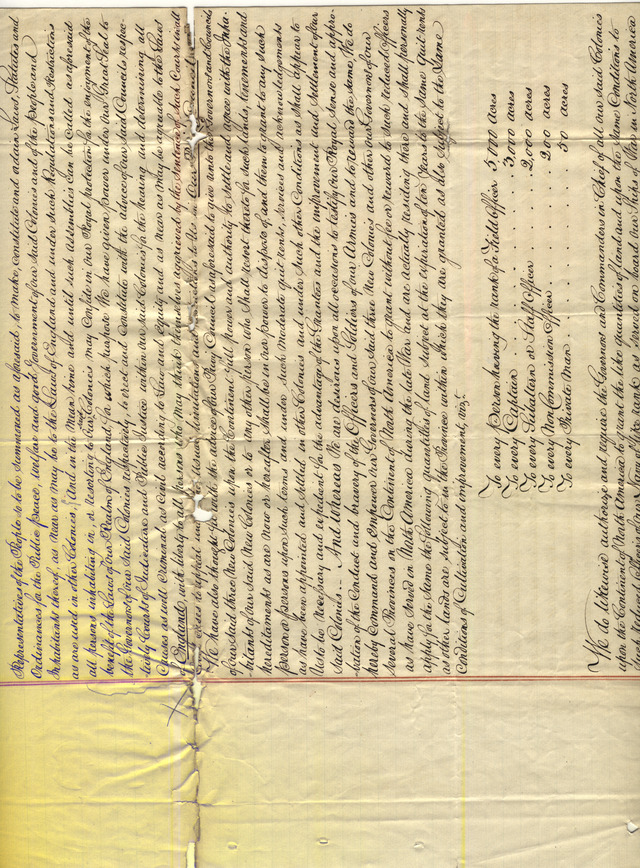 Representatives of the People so to be summoned as aforesaid, to make, constitute and ordain Laws, Statutes and
Ordinances for the Public peace, welfare and good Government of our said Colonies and of the People and
Inhabitants thereof, as near as may be to the Laws of England and under such Regulations and Restrictions
as are used in other Colonies, And in the Mean time and until such Assemblies can be called as aforesaid
all persons inhabiting in, or resorting to our said Colonies may confide in our Royal protection for the enjoyment of the
benefit of the Laws of our Realm of England for which purpose We have given power under our Great Seal to
the Governors of our Said Colonies respectively, to erect and constitute with the advice of our said Councils respec-
tively Courts of Judicature and Public Justice within our said Colonies for the hearing and determining all
Causes as well Criminal as Civil according to Law and Equity and as near as may be agreeable to the Laws
of England with liberty to all persons who may think themselves aggrieved by the Sentence of such Courts in all
We have also thought fit with the advice of our Privy Council as aforesaid to give unto the Governors and Councils
of our said three New Colonies upon the Continent full power and authority to settle and agree with the Inha-
bitants of our said New Colonies or to any other person who shall resort thereto for such Lands, tenements and
hereditaments as are now or hereafter shall be in our power to dispose of and them to grant to any such
person or persons upon such terms and under such moderate quit rents, services and acknowledgments
as have been appointed and settled in other Colonies and under such other Conditions as shall appear to
Us to be necessary and expedient for the advantage of the Grantees and the improvement and settlement of our
said Colonies. And whereas We are desirous upon all occasions to testify our Royal Sense and appro-
bation of the Conduct and bravery of the Officers and Soldiers of our Armies and to reward the same, We do
hereby Command and Empower our Governors of our said three New Colonies and other our Governors of our
several Provinces in the Continent of North America to grant without fee or reward to such reduced officers
as have served in North America during the late War and are actually residing there and shall personally
apply for the same the following quantities of land subject at the expiration of ten years to the same quit rents
as other lands are subject to in the Province within which they are granted as also subject to the same
Conditions of Cultivation and improvement, viz:
To every Person having the rank of a Field Officer 5,000 acres
To every Captain . . . 3,000 acres
To every Subaltern or Staff Officer . . . 2,000 acres
To every Non Commission Officer . . . 200 acres
To every Private Man . . . 50 acres
We do likewise authorize and require the Governors and Commanders in Chief of all our said Colonies
upon the Continent of North America to grant the like quantities of land and upon the same Conditions to